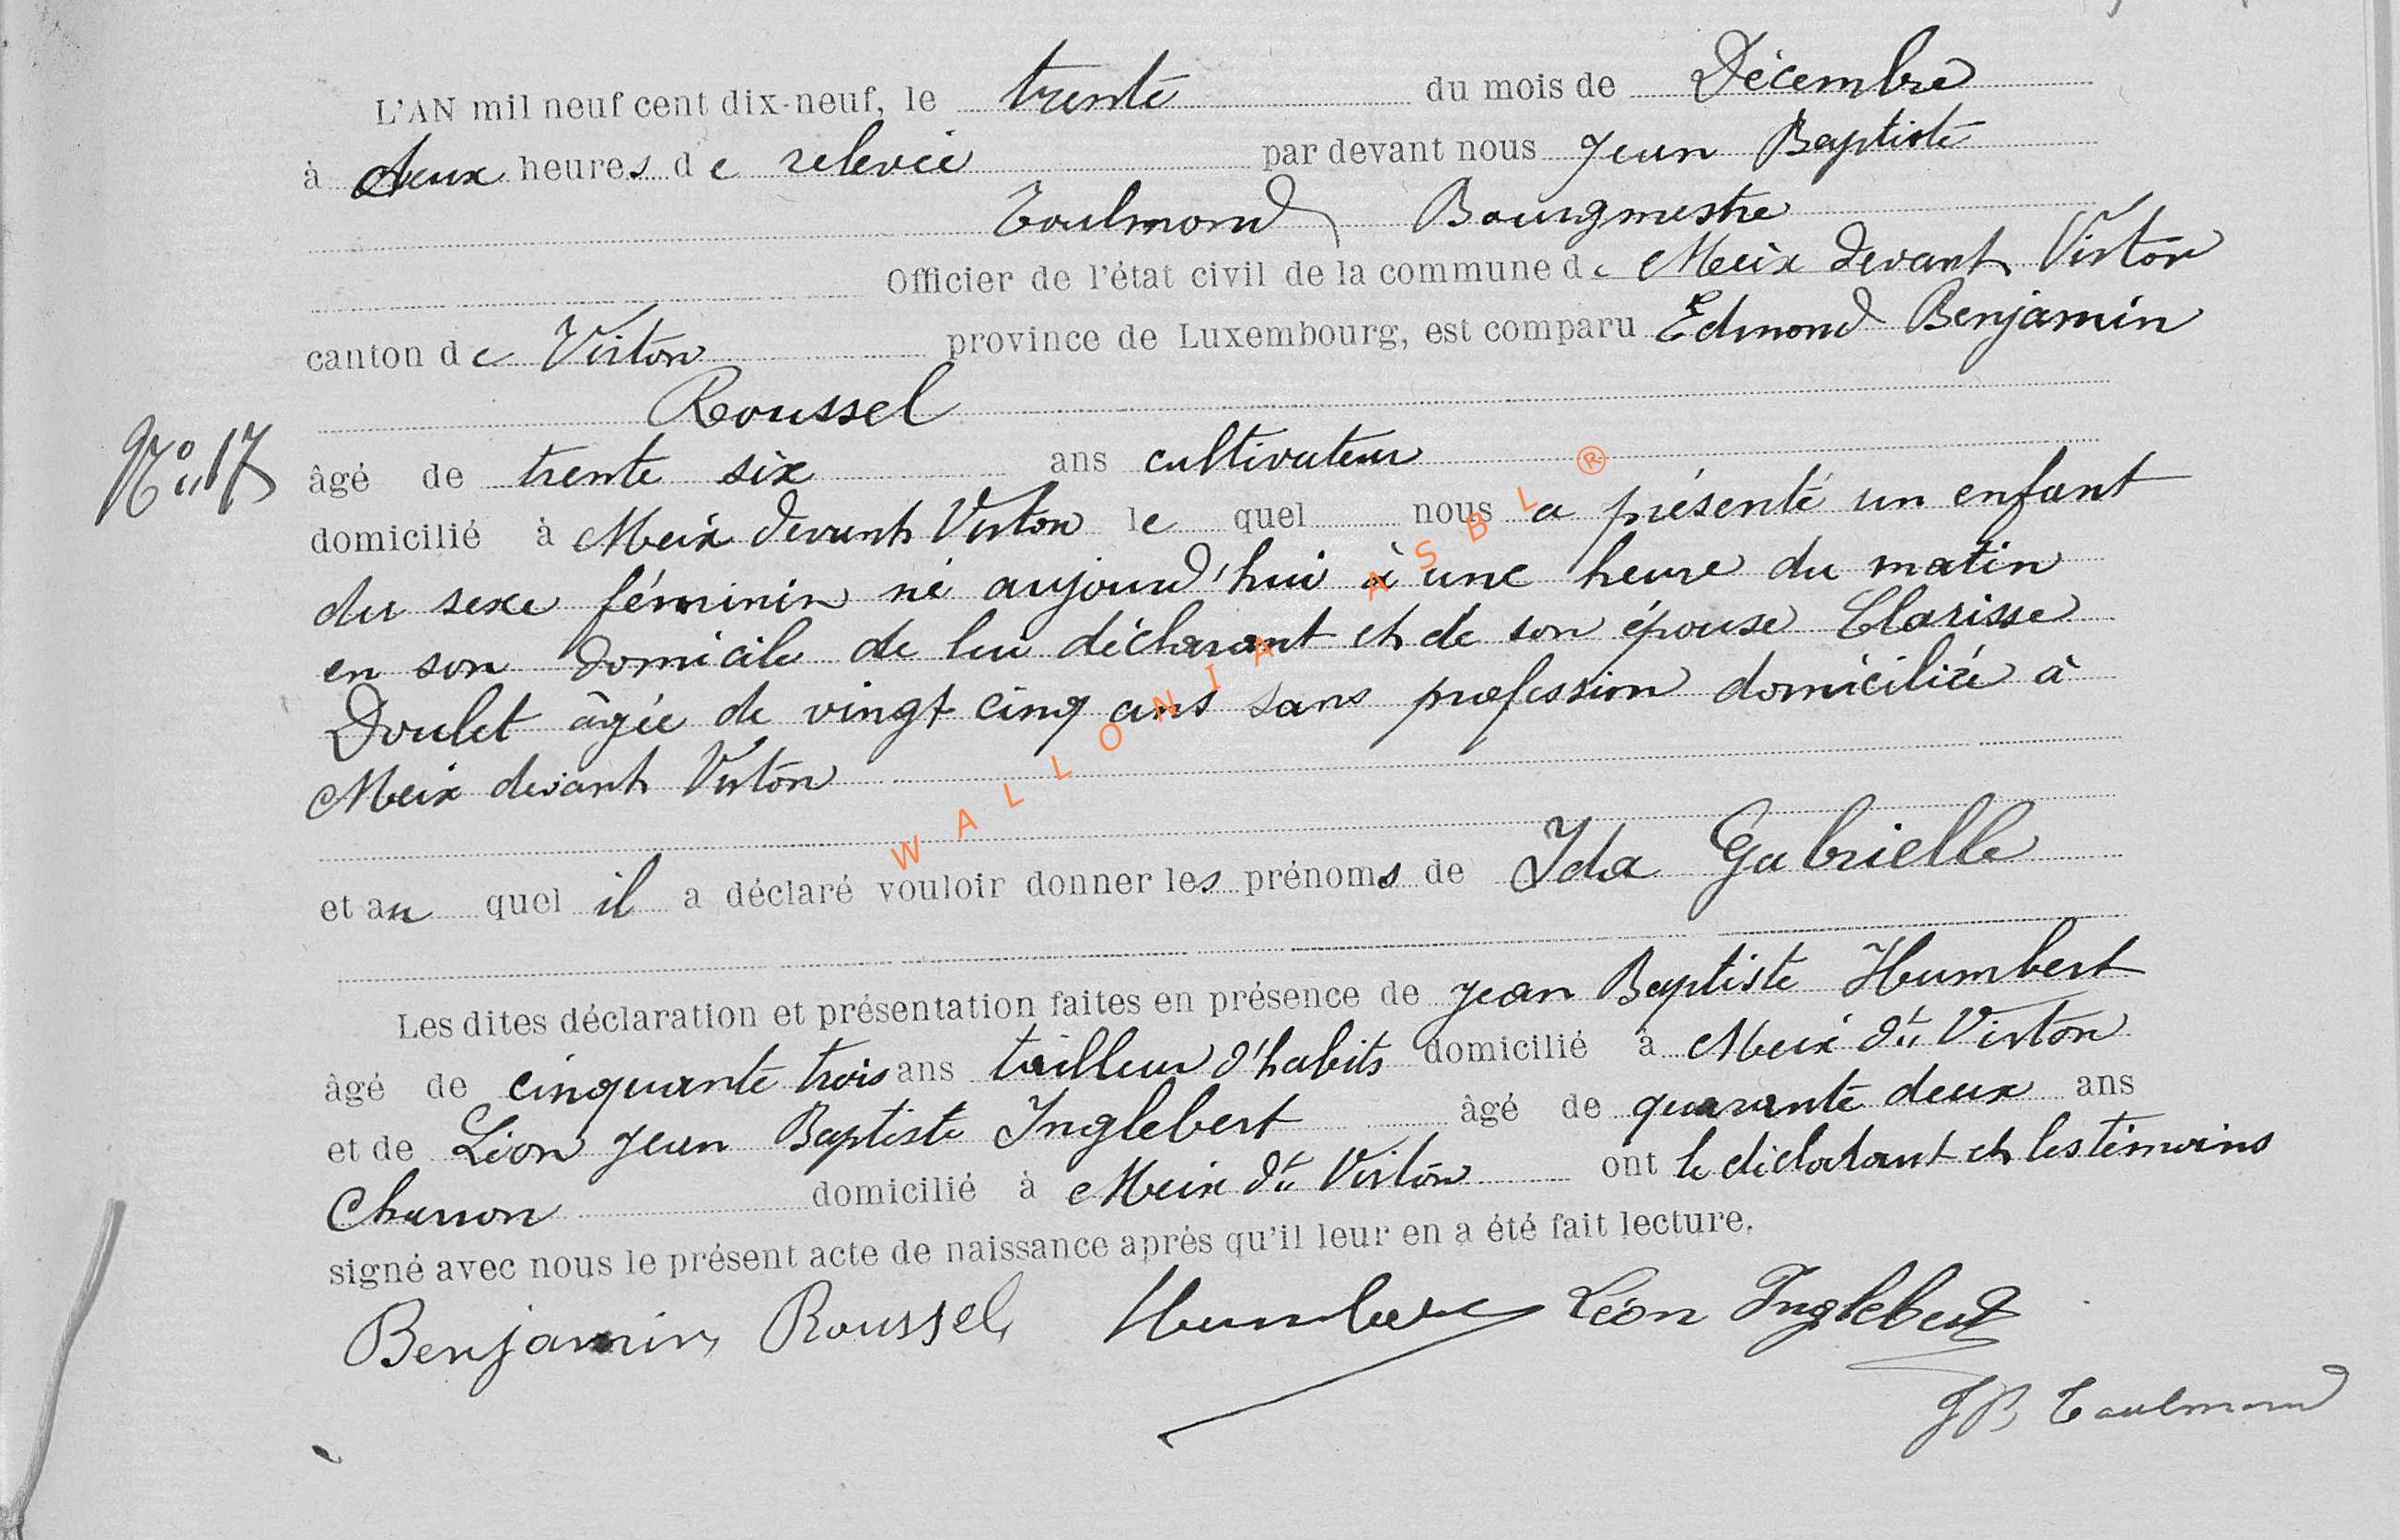 L'AN mil neuf cent dix-neuf, le trente du mois de Décembre
à deux heures de relevée par devant nous Jean Baptiste
Toulmond Bourgmestre
Officier de l'état civil de la commune de Meix devant Virton
canton de Virton province de Luxembourg, est comparu Edmond Benjamin
Roussel
N° 17
âgé de trente six ans cultivateur
domicilié à Meix devant Virton le quel nous a présenté un enfant
du sexe féminin né aujourd'hui à une heure du matin
en son domicile de lui déclarant et de son épouse Clarisse
Doulet âgée de vingt cinq ans sans profession domiciliée à
Meix devant Virton
WALLONIA ASBL ®
et au quel il a déclaré vouloir donner les prénoms de Ida Gabrielle
Les dites déclaration et présentation faites en présence de Jean Baptiste Humbert
âgé de cinquante trois ans tailleur d'habits domicilié à Meix dt Virton
et de Léon Jean Baptiste Inglebert âgé de quarante deux ans
Charron domicilié à Meix dt Virton ont le déclarant et les témoins
signé avec nous le présent acte de naissance après qu'il leur en a été fait lecture.
Benjamin Roussel Humbert Léon Inglebert
JB Toulmond